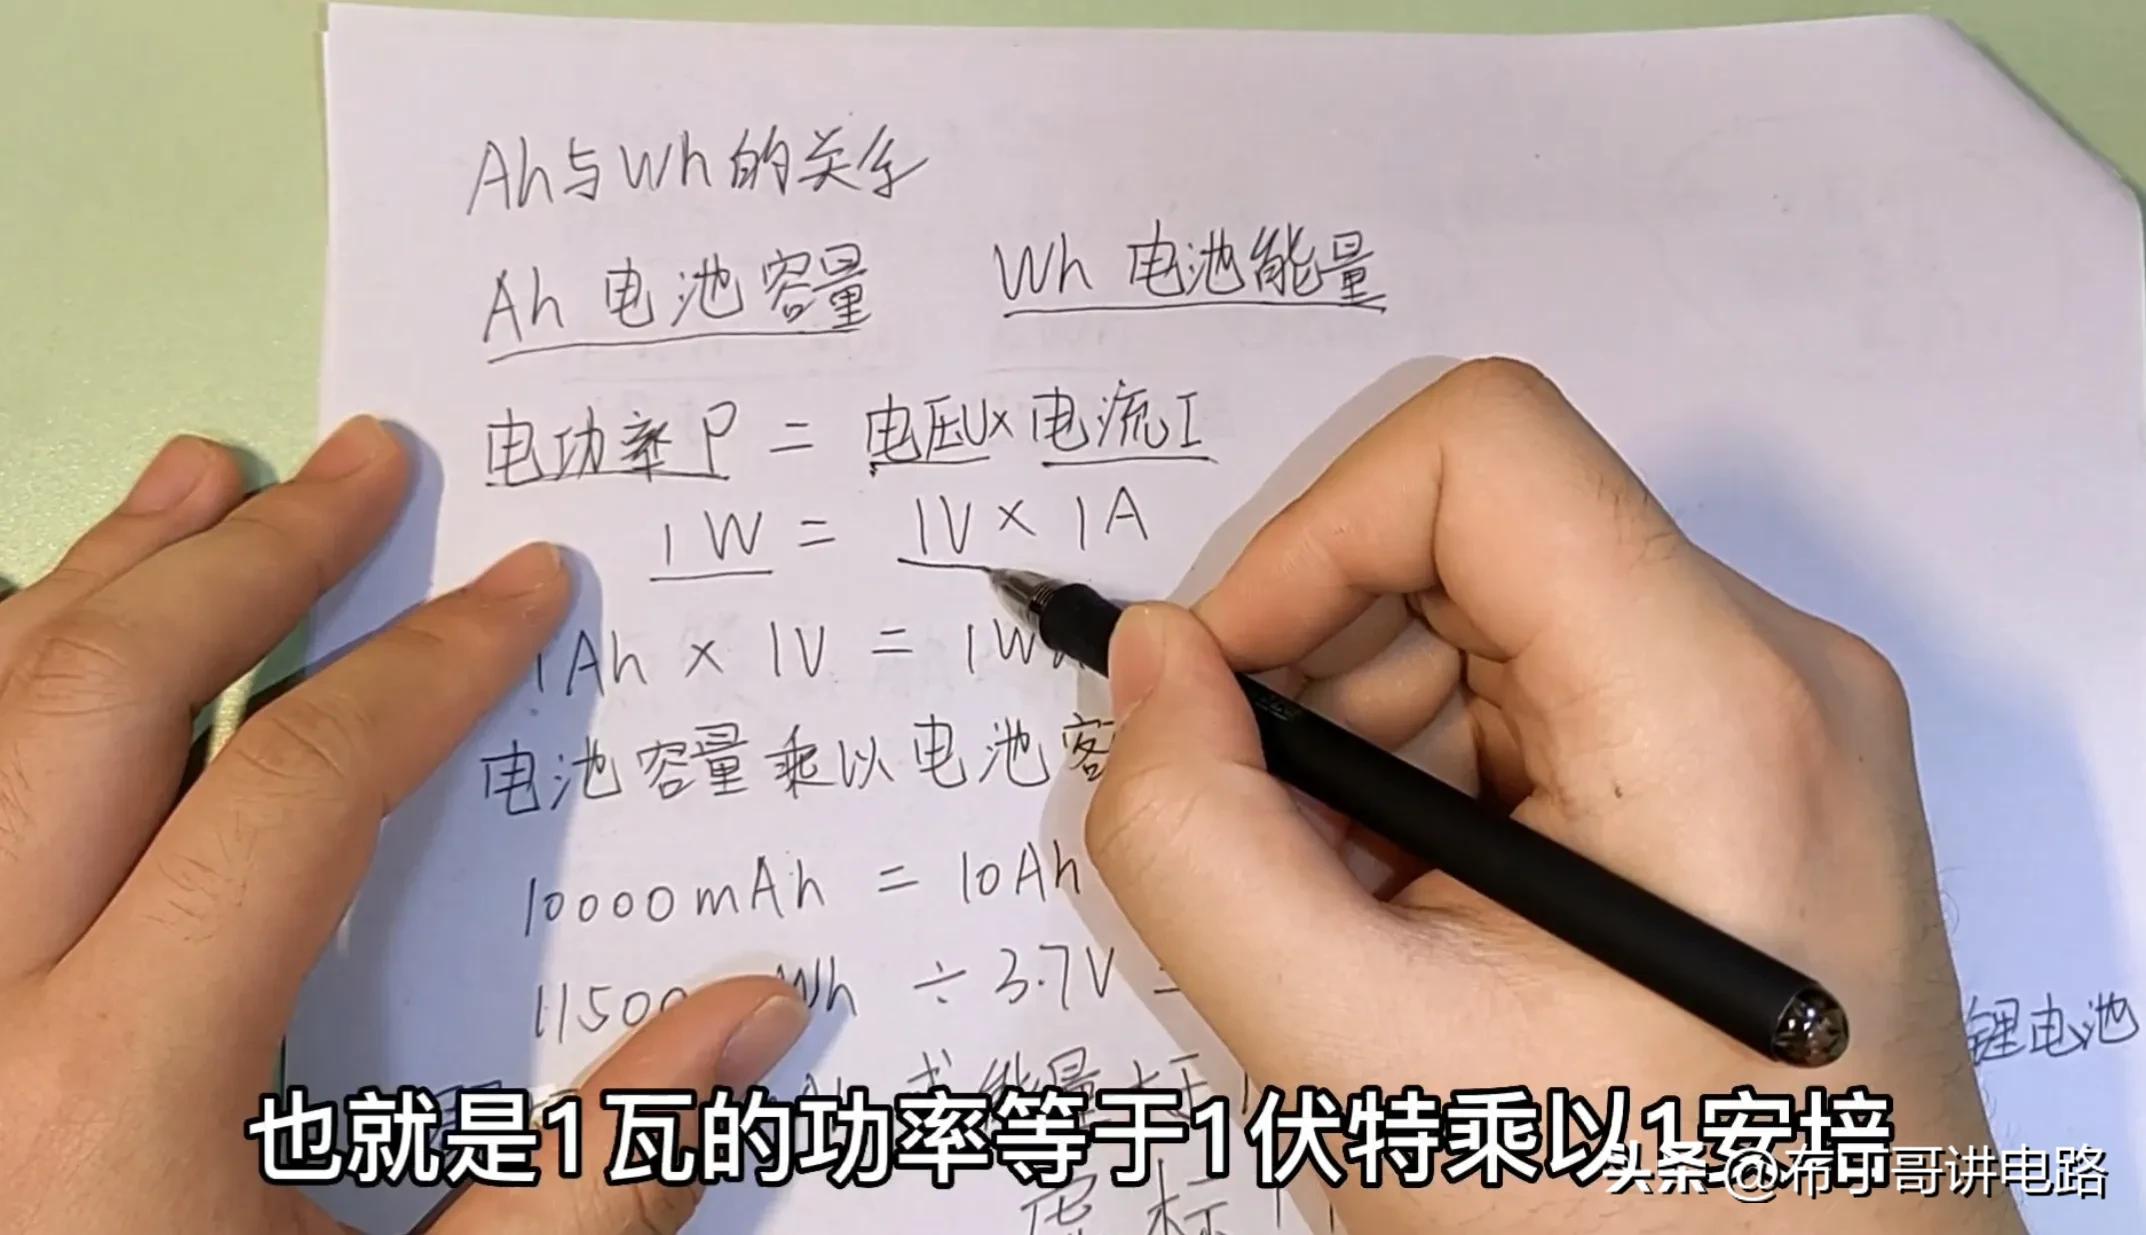 Ah与Wh的关系
Ah 电池容量 Wh 电池能量
电功率P = 电压U× 电流I
1W = 1V × 1A
1Ah × 1V = 1Wh
电池容量乘以电池容
10000mAh = 10Ah
11500 Wh ÷ 3.7V =
锂电池
求能量大于
也就是1瓦的功率等于1伏特乘以1安培
虚标
头条 @布丁哥讲电路